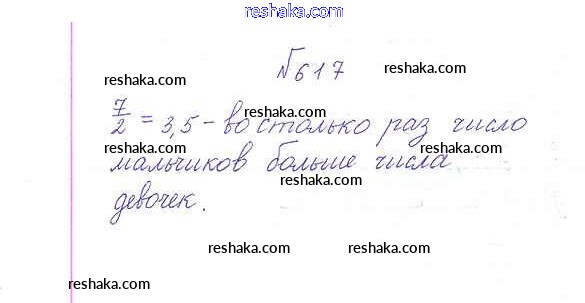 reshaka.com
№617
reshaka.com
reshaka.com
7/2 = 3,5 - во столько раз число
reshaka.com
reshaka.com reshaka.com
мальчиков больше числа
reshaka.com
девочек.
reshaka.com reshaka.com
reshaka.com